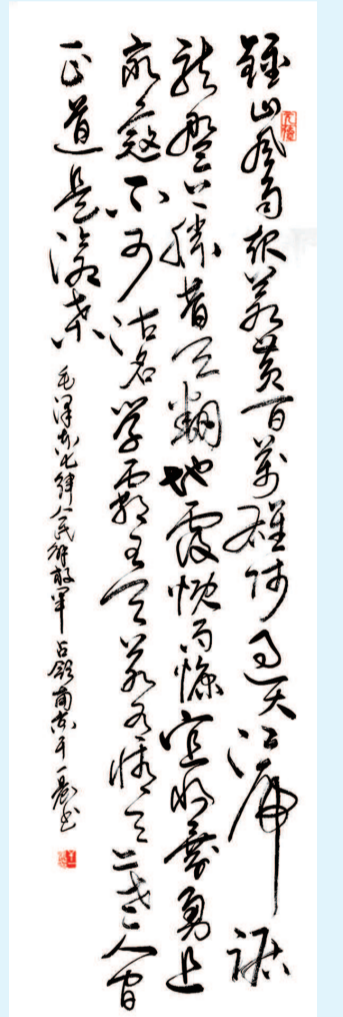 鍾山风雨起苍黄百萬雄师过大江虎踞
龙盘今胜昔天翻地覆慨而慷宜将剩勇追
穷寇不可沽名学霸王天若有情天亦老人间
正道是沧桑 毛泽东七律人民解放军占领南京 于一书